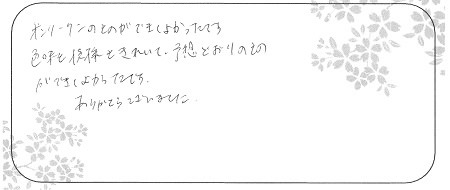 オンリーワンのものができてよかったです
色味も模様もきれいで、予想どおりのもの
ができてよかったです。
ありがとうございました.